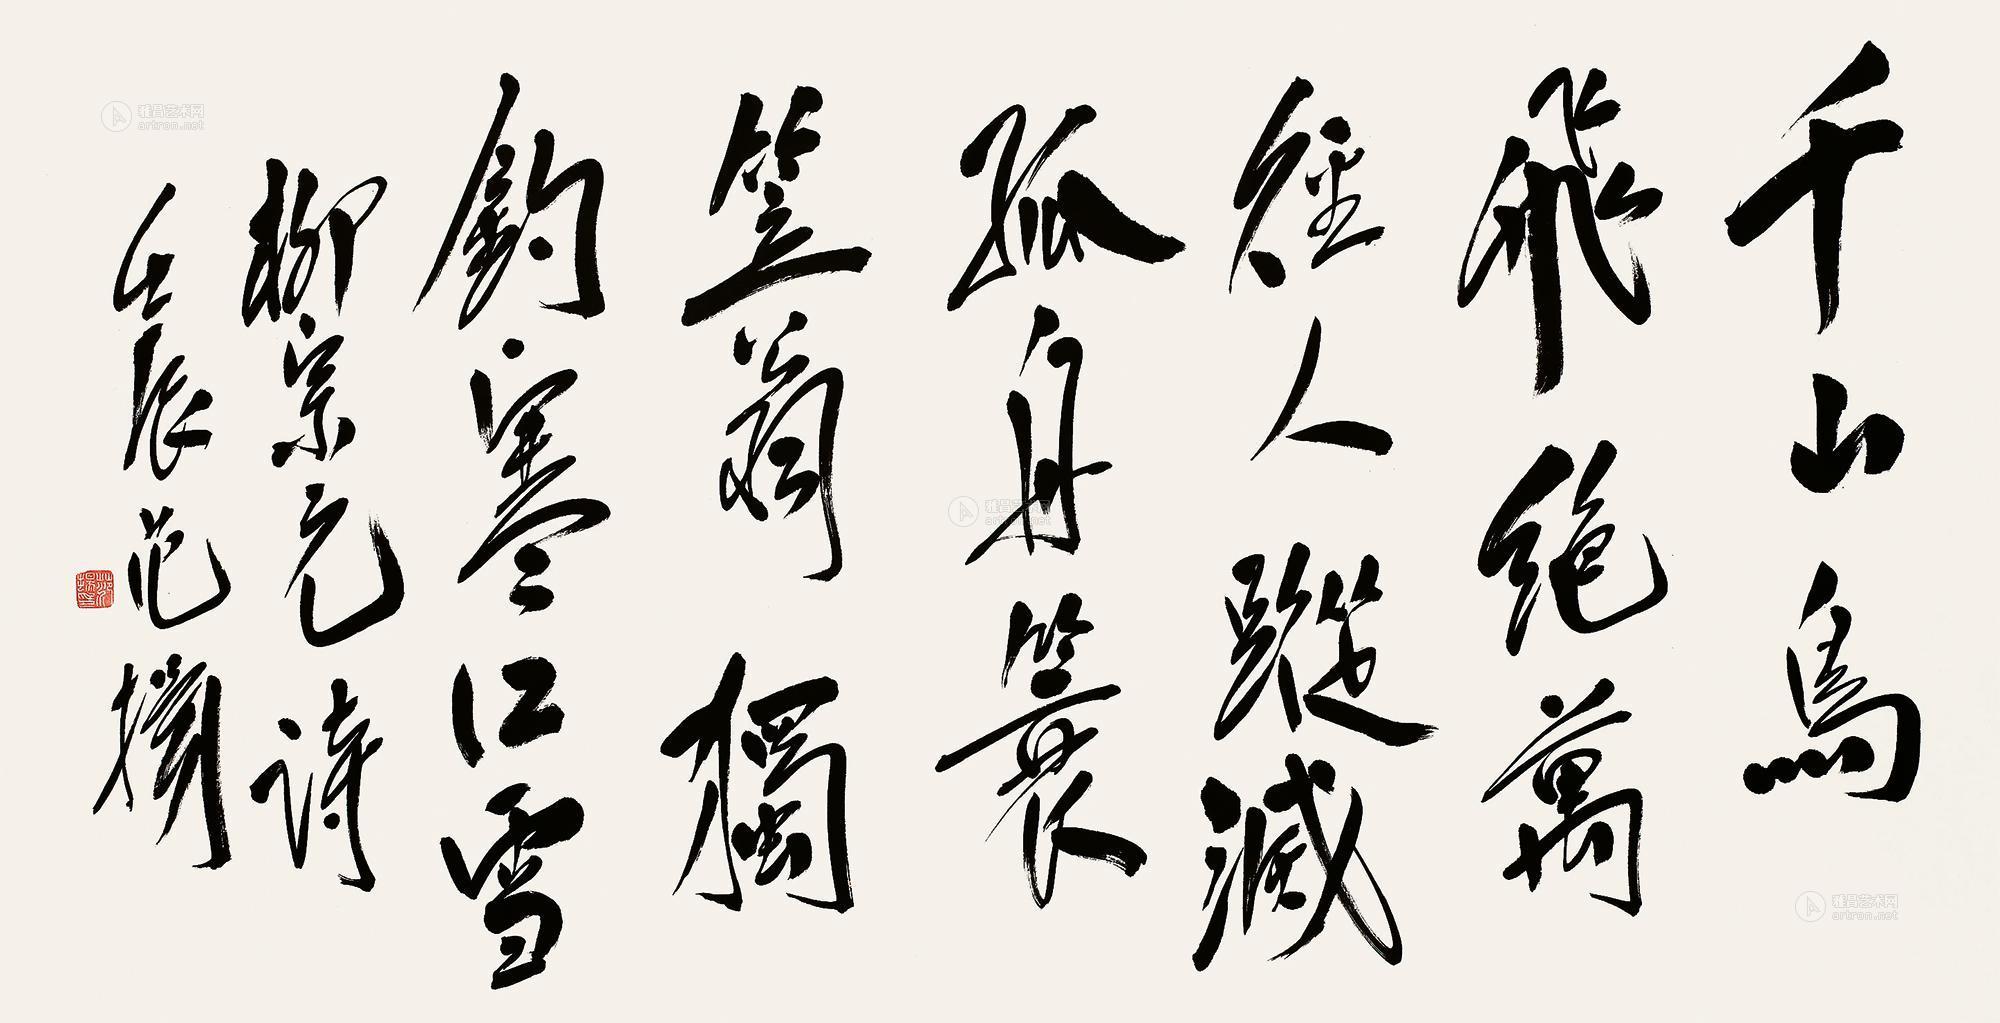 千山鳥
飛絶萬
徑人蹤滅
孤舟蓑
笠翁獨
釣寒江雪
柳宗元詩
壬辰范揚
雅昌艺术网
artron.net
雅昌艺术网
artron.net
雅昌艺术网
artron.net